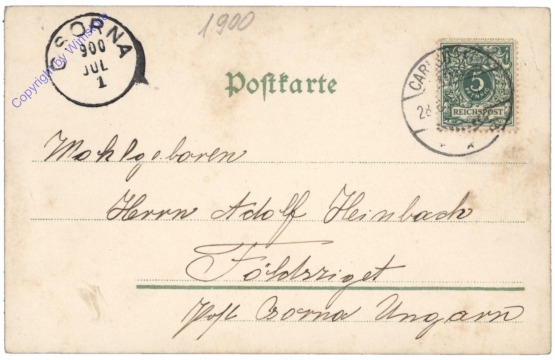 1900
CSORNA
900
JUL
1
Copyright by
Postkarte
5
REICHSPOST
Wohlgeboren
Herrn Adolf Heinbach
Földsziget
Post Csorna Ungarn